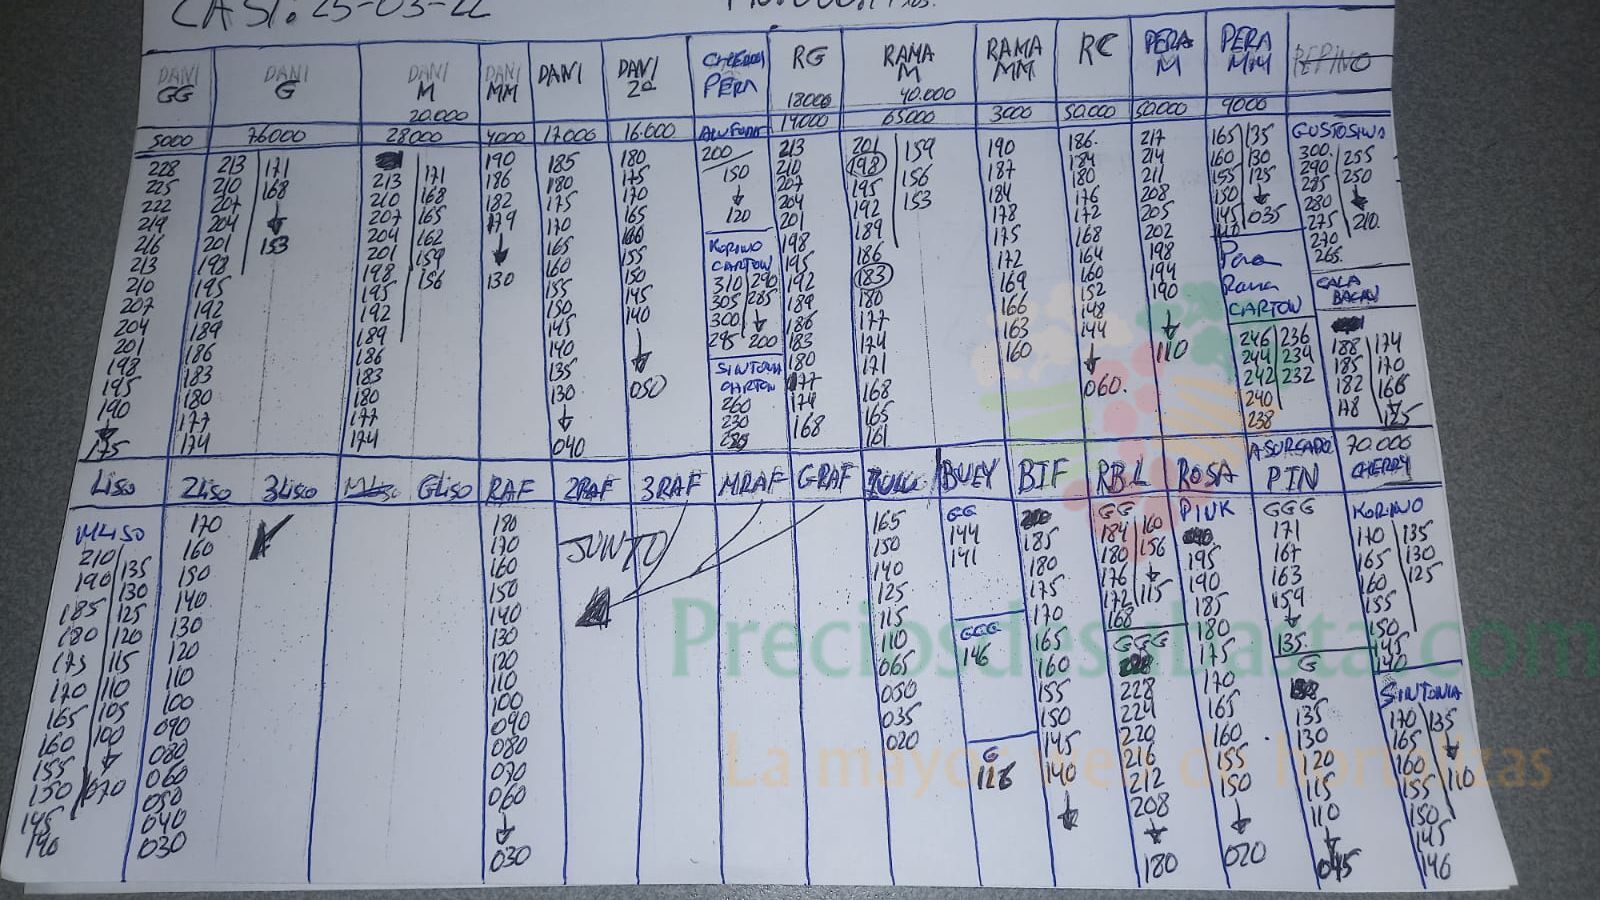 CASI: 25-03-22
DANI GG
DANI G
DANI M
20.000
DANI MM
DANI
DANI 2ª
PERA
RG
18000
RAMA M
40.000
RAMA MM
RC
PERA M
PERA MM
PEPINO
5000
76000
28000
4000
17000
16.600
14000
65000
3000
50.000
50.000
9000
228
225
222
219
216
213
210
207
204
201
198
195
190
175
213 171
210 168
207
204
201 153
198
195
192
189
186
183
180
177
174
213 171
210 168
207 165
204 162
201 159
198 156
195
192
189
186
183
180
177
174
190
186
182
179
130
185
180
175
170
165
160
155
150
145
140
135
130
040
180
175
170
165
160
155
150
145
140
050
200
150
120
KORINO
CARTON
310 290
305 285
300
295 200
SINTONIA
CARTON
260
230
213
210
207
204
201
198
195
192
189
186
183
180
177
174
168
201 159
198 156
195 153
192
189
186
183
180
177
174
171
168
165
161
190
187
184
178
175
172
169
166
163
160
186.
184
180
176
172
168
164
160
152
148
144
060.
217
214
211
208
205
202
198
194
190
110
165 135
160 130
155 125
150
145 035
Pera
Rama
CARTON
246 236
244 234
242 232
240
238
GUSTOSINO
300 255
290 250
285
280
275 210.
270
265.
CALA
BACIN
188 174
185 170
182 166
178 125
LISO
2LISO
3LISO
GLISO
RAF
2RAF
3RAF
MRAF
GRAF
BUEY
BIF
RBL
ROSA
ASURCADO
PIN
70.000
CHERRY
MLISO
210
190 135
185 130
180 125
175 120
170 115
165 110
160 105
155 100
150 070
145
140
170
160
150
140
130
120
110
100
090
080
060
050
040
030
180
170
160
150
140
130
120
110
100
090
080
070
060
030
JUNTO
165
150
140
125
115
110
065
050
035
020
GG
144
141
GGG
146
G
126
185
180
175
170
165
160
155
150
145
140
GG
184 160
180 156
176
172 115
168
GGG
228
224
220
216
212
208
180
PINK
195
190
185
180
175
170
165
160
155
150
020
GGG
171
167
163
159
135.
G
135
130
120
115
110
045
KORINO
170 135
165 130
160 125
155
150
145
140
SINTONIA
170 135
165
160 110
155
150
145
146
Preciosdesubasta.com
La mayor web de hortalizas